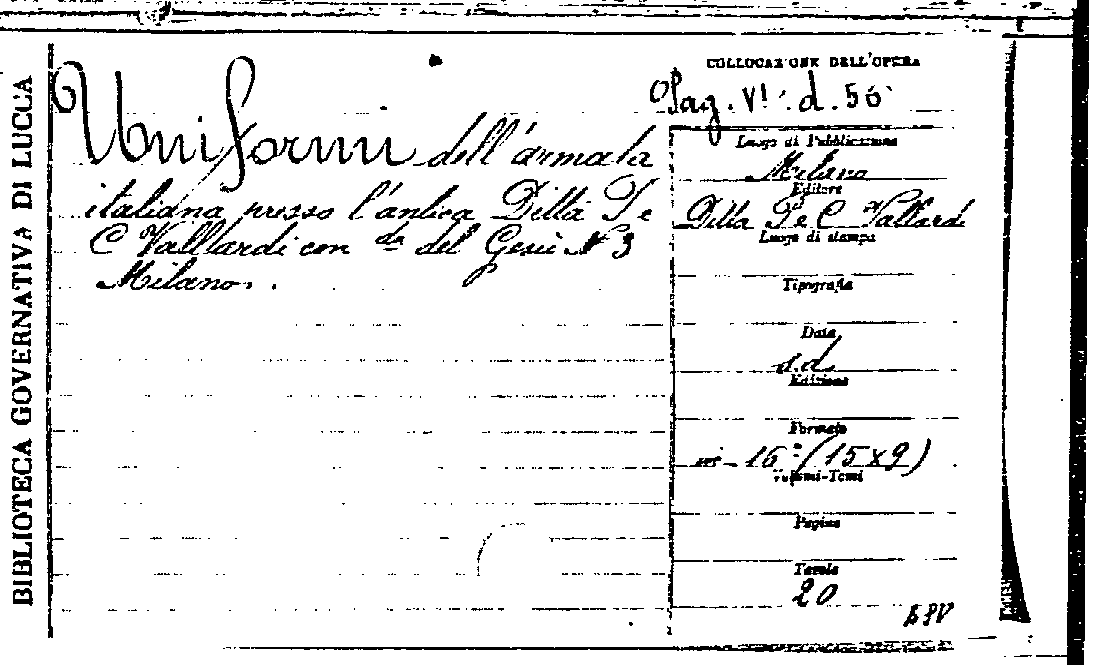 BIBLIOTECA GOVERNATIVA DI LUCCA
COLLOCAZIONE DELL'OPERA
Pag. VI. d. 56
Uniformi dell'armata
italiana presso l'antica Ditta P e
C Vallardi con da del Gesù N 3
Milano.
Luogo di Pubblicazione
Milano
Editore
Ditta P e C Vallardi
Luogo di stampa
Tipografia
Data
s.d.
Edizione
Formato
in-16° (15x9)
Volumi-Tomi
Pagine
Tavole
20